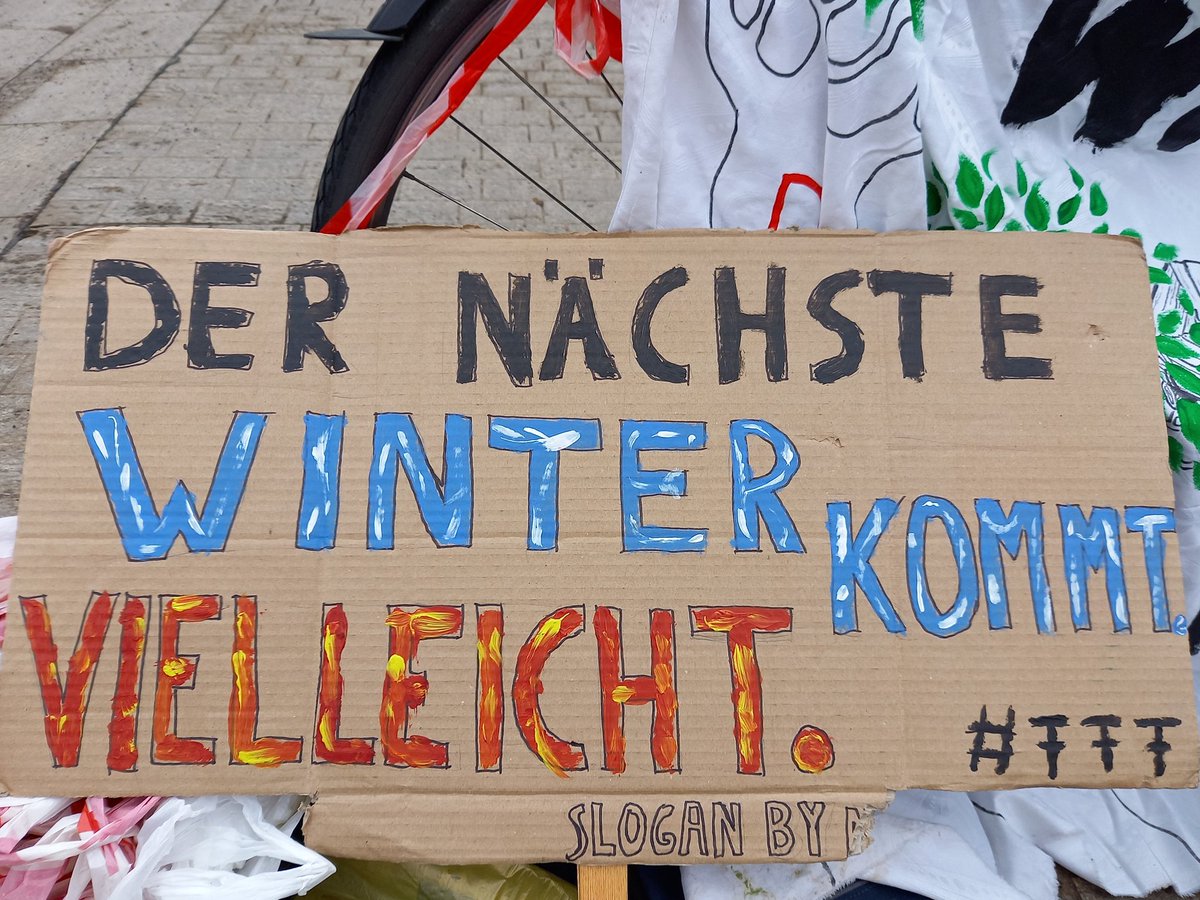 DER NÄCHSTE
WINTER KOMMT.
VIELLEICHT.
#FFF
SLOGAN BY